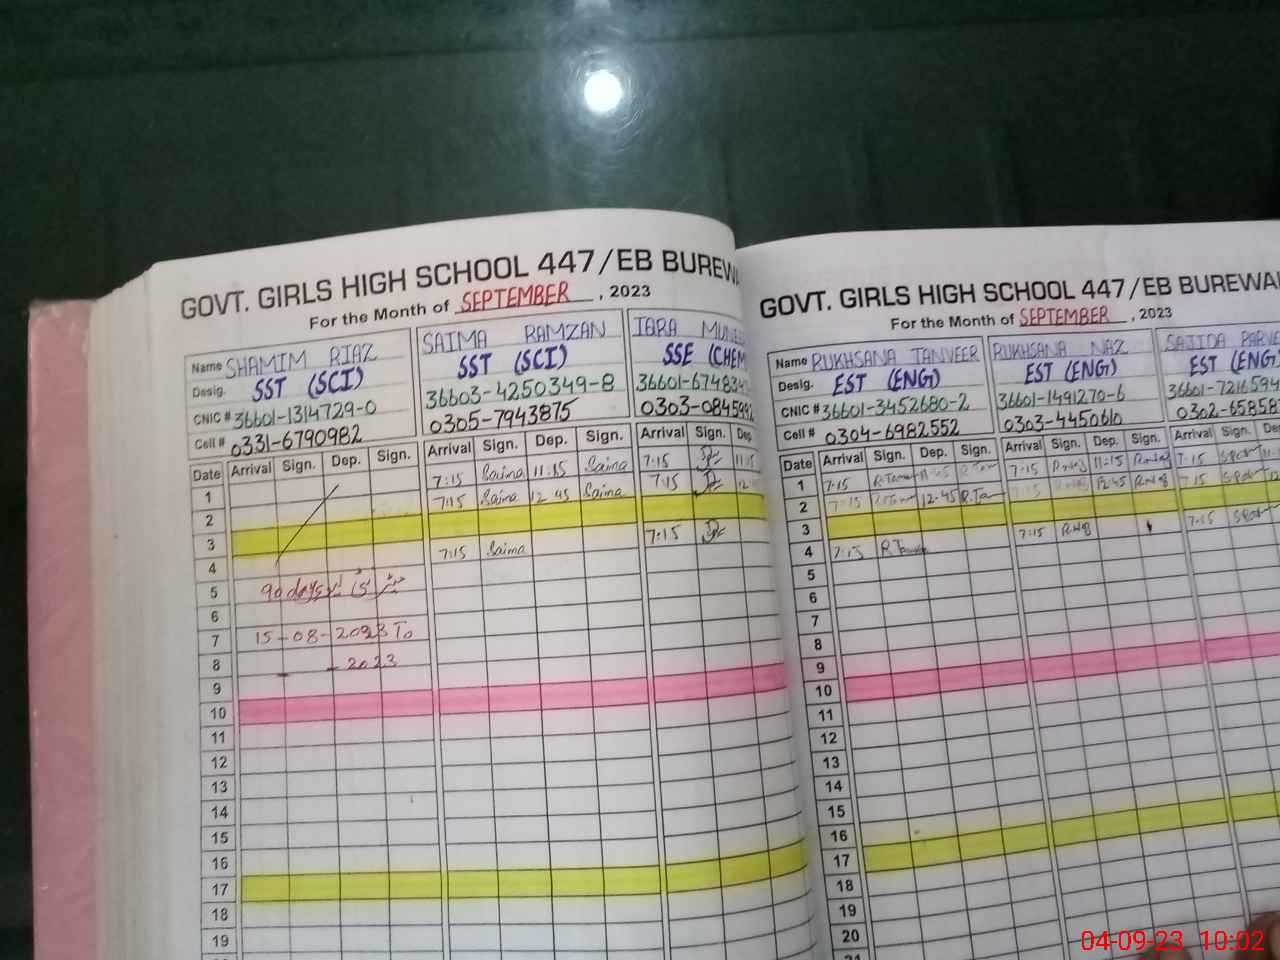 GOVT. GIRLS HIGH SCHOOL 447/EB BUREW
For the Month of SEPTEMBER, 2023
Name SHAMIM RIAZ
Desig. SST (SCI)
CNIC # 36601-1314729-0
Cell # 0331-6790982
SAIMA RAMZAN
SST (SCI)
36603-4250349-8
0305-7943875
IARA MUNE
SSE (CHEM
36601-67483
0303-0845992
Date Arrival Sign. Dep. Sign. Arrival Sign. Dep. Sign. Arrival Sign. Dep
1 7:15 Saima 11:15 Saima 7:15 11:15
2 7:15 Saima 12:45 Saima 7:15 12
3
4 7:15 Saima 7:15
5 90 days
6
7 15-08-2023 To
8 - 2023
9
10
11
12
13
14
15
16
17
18
19
GOVT. GIRLS HIGH SCHOOL 447/EB BUREWA
For the Month of SEPTEMBER, 2023
Name RUKHSANA TANVEER
Desig. EST (ENG)
CNIC # 36601-3452680-2
Cell # 0304-6982552
RUKHSANA NAZ
EST (ENG)
36601-1491270-6
0303-4450610
SAJIDA PARVE
EST (ENG)
36601-7216594
0302-65858
Date Arrival Sign. Dep. Sign. Arrival Sign. Dep. Sign. Arrival Sign. De
1 7:15 R.Tan 11:15 R.Tan 7:15 R.Naz 11:15 R.Naz 7:15 11:1
2 7:15 R.Tan 12:45 R.Tan 7:15 R.Naz 12:45 R.Naz 7:15 12
3
4 7:15 R.Tan 7:15 R.Naz 7:15
5
6
7
8
9
10
11
12
13
14
15
16
17
18
19
20
21
04-09-23 10:02